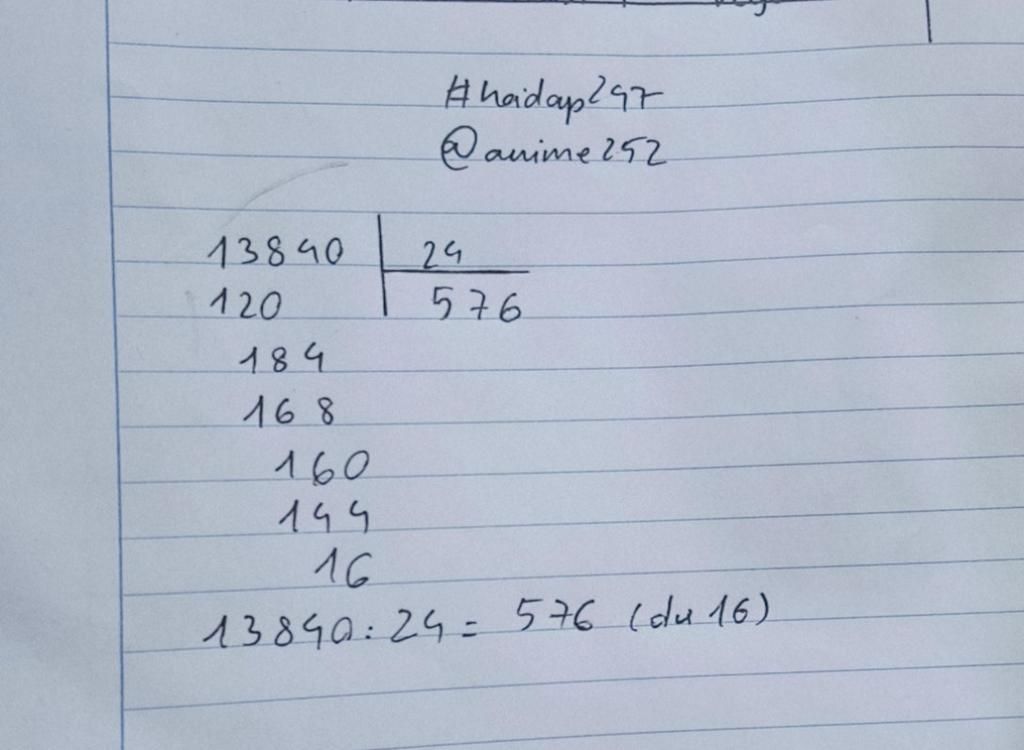 #hoidap247
@anime252
13840 24
120 576
184
168
160
144
16
13840:24= 576 (dư 16)